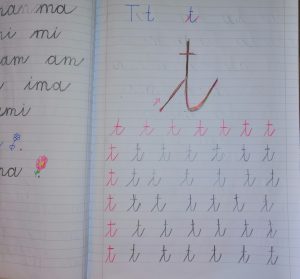 ma
mi
am am
ima
T t t
t
t t t t t t t
t t t t t t t
t t t t t t t
t t t t t t t
t t t t t t t
t t t t t t t